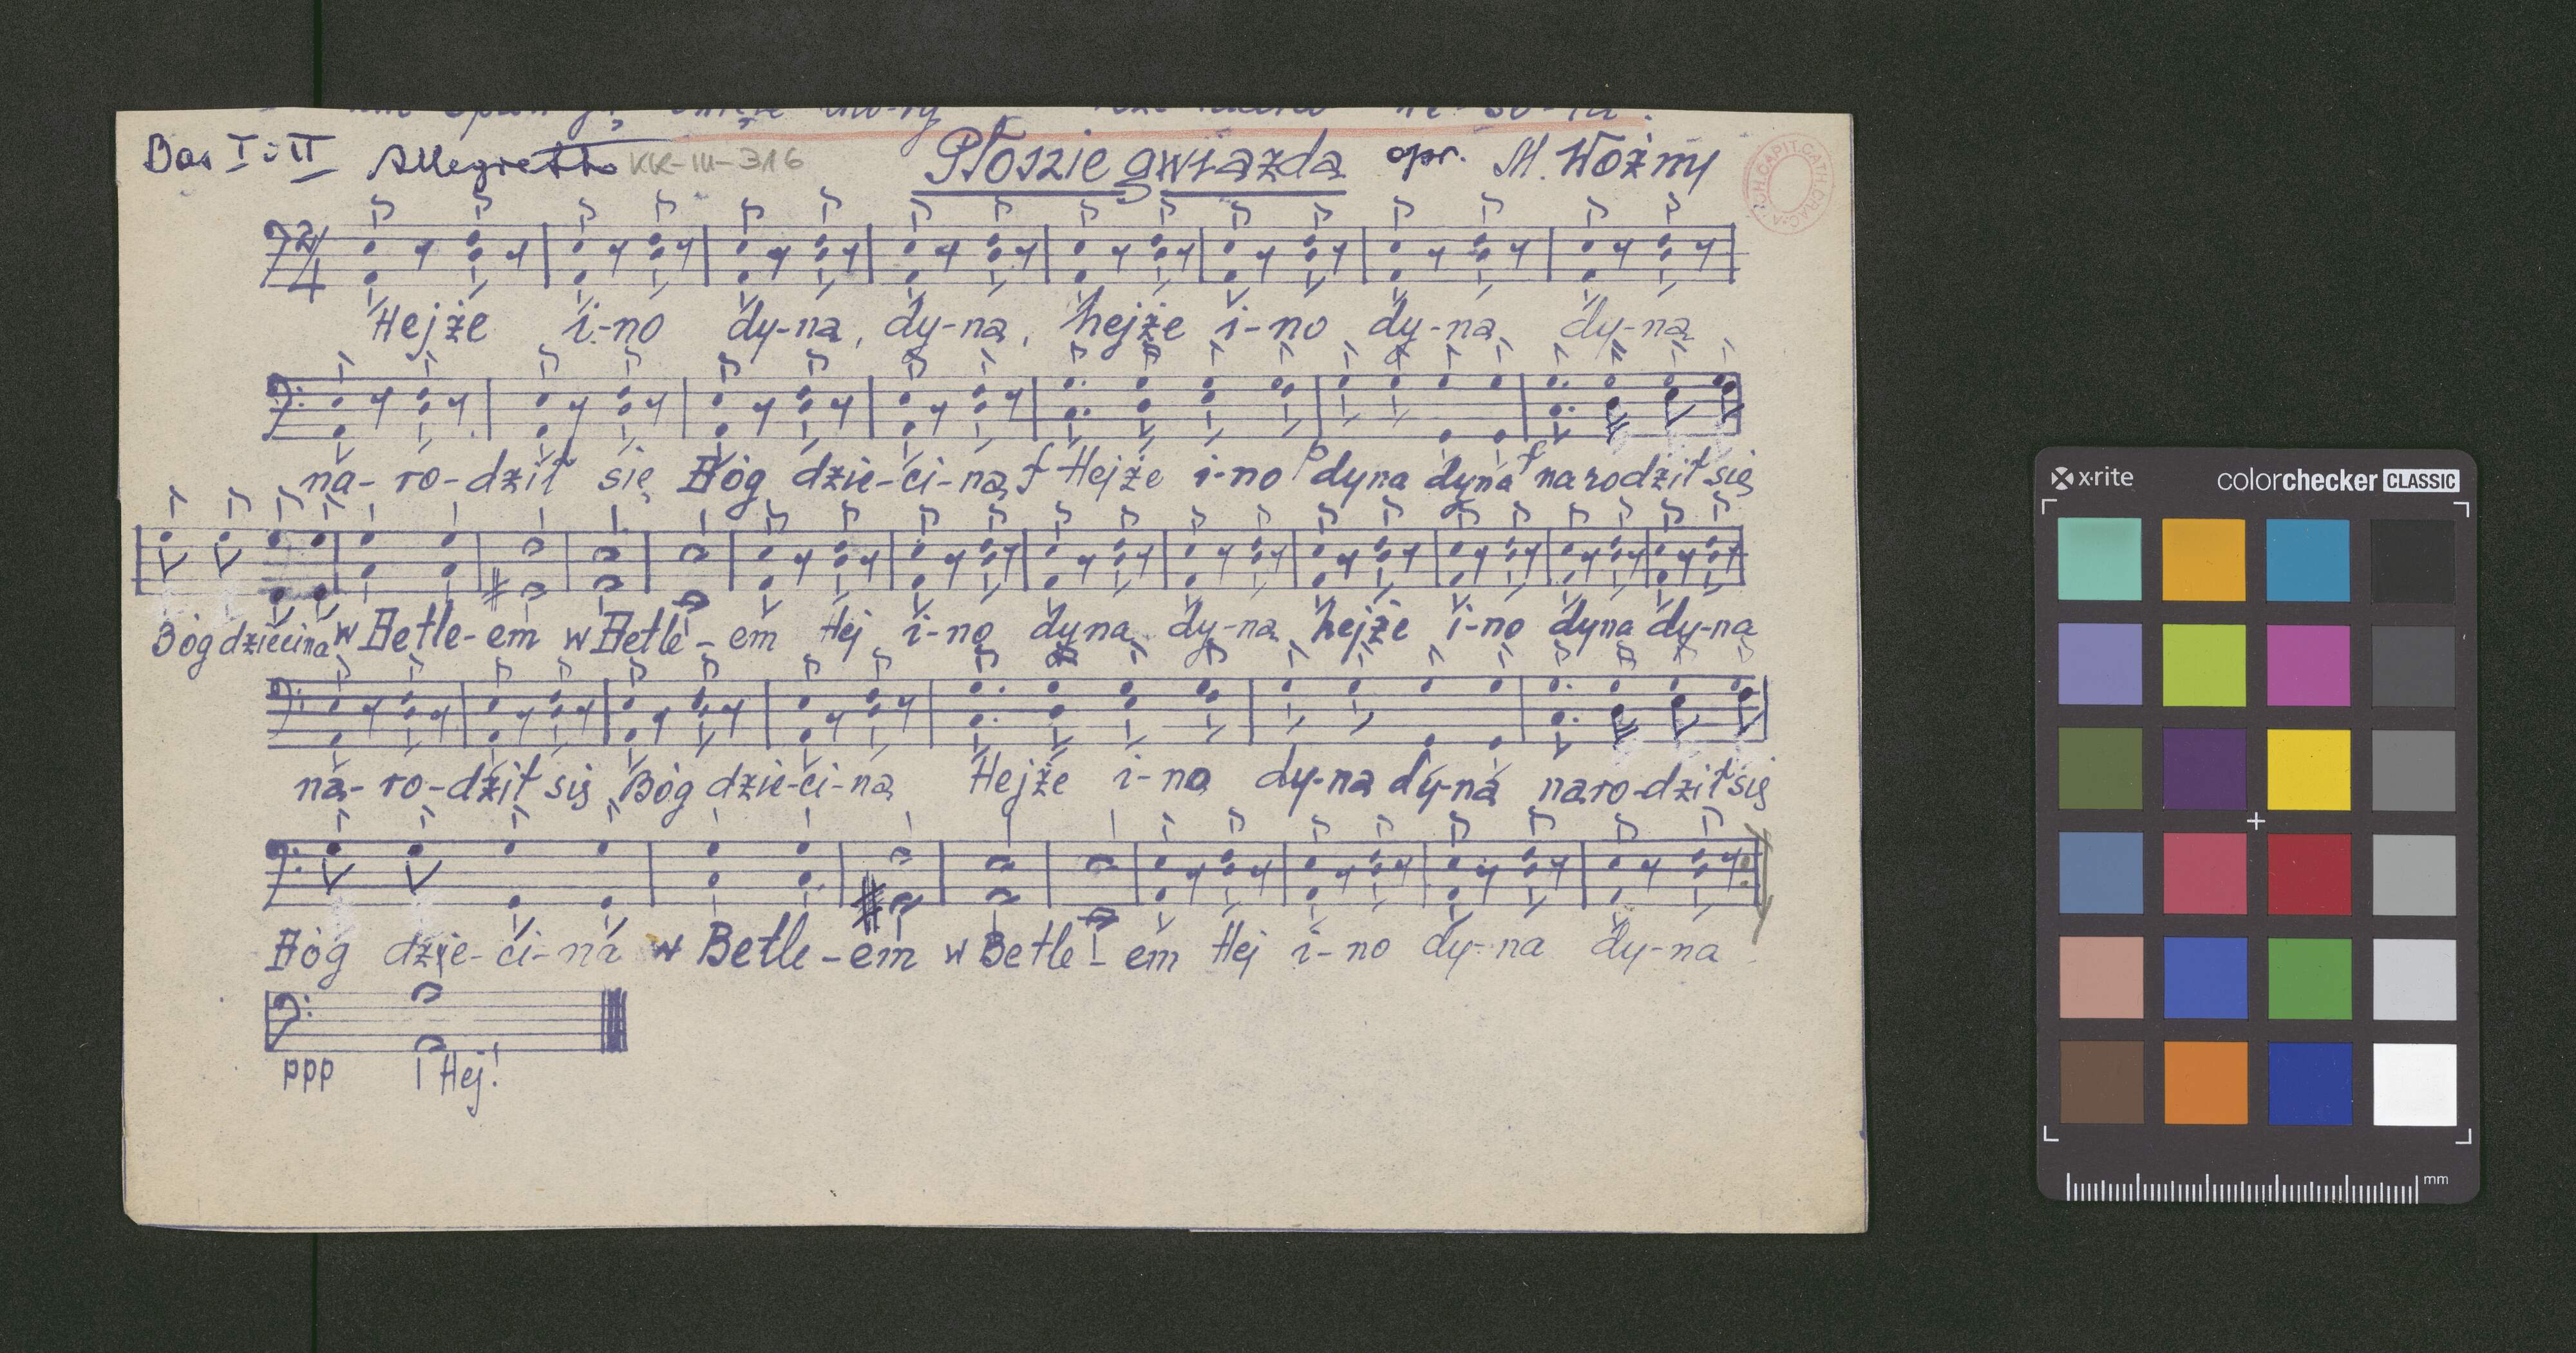 Bas I i II Allegretto KK-III-316 Płoszie gwiazda opr. M. Woźny
2/4
Hejże i-no dy-na, dy-na, hejże i-no dy-na dy-na
na-ro-dził się Bóg dzie-ci-na f Hejże i-no p dyna dyna f narodził się
Bóg dziecina w Betle-em w Betle-em Hej i-no dyna dy-na hejże i-no dyna dy-na
na-ro-dził się Bóg dzie-ci-na Hejże i-no dy-na dy-na naro-dził się
Bóg dzie-ci-na w Betle-em w Betle-em Hej i-no dy-na dy-na
ppp Hej!
x-rite colorchecker CLASSIC
mm